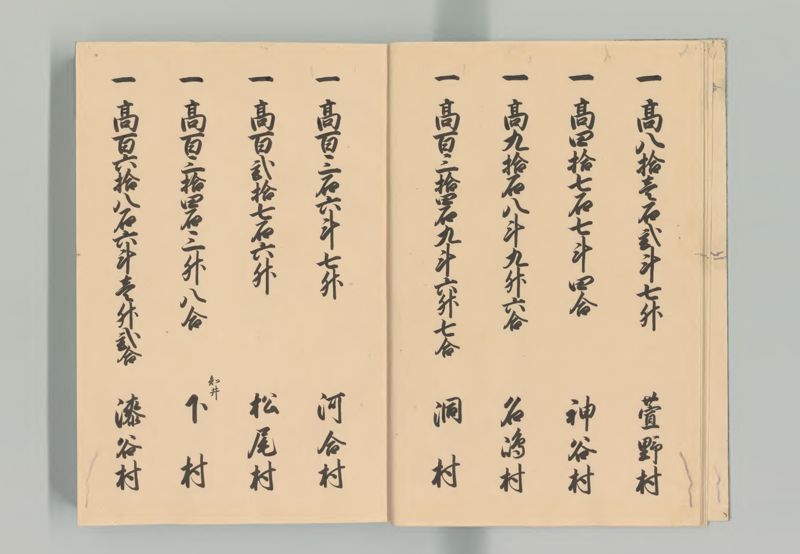 一 高八拾壱石弐斗七升 萱野村
一 高四拾七石七斗四合 神谷村
一 高九拾石八斗九升六合 名嶋村
一 高百三拾四石九斗六升七合 洞村
一 高百三石六斗七升 河合村
一 高百弐拾七石六升 松尾村
一 高百三拾四石三升八合 知井 下村
一 高百六拾八石六斗壱升弐合 漆谷村